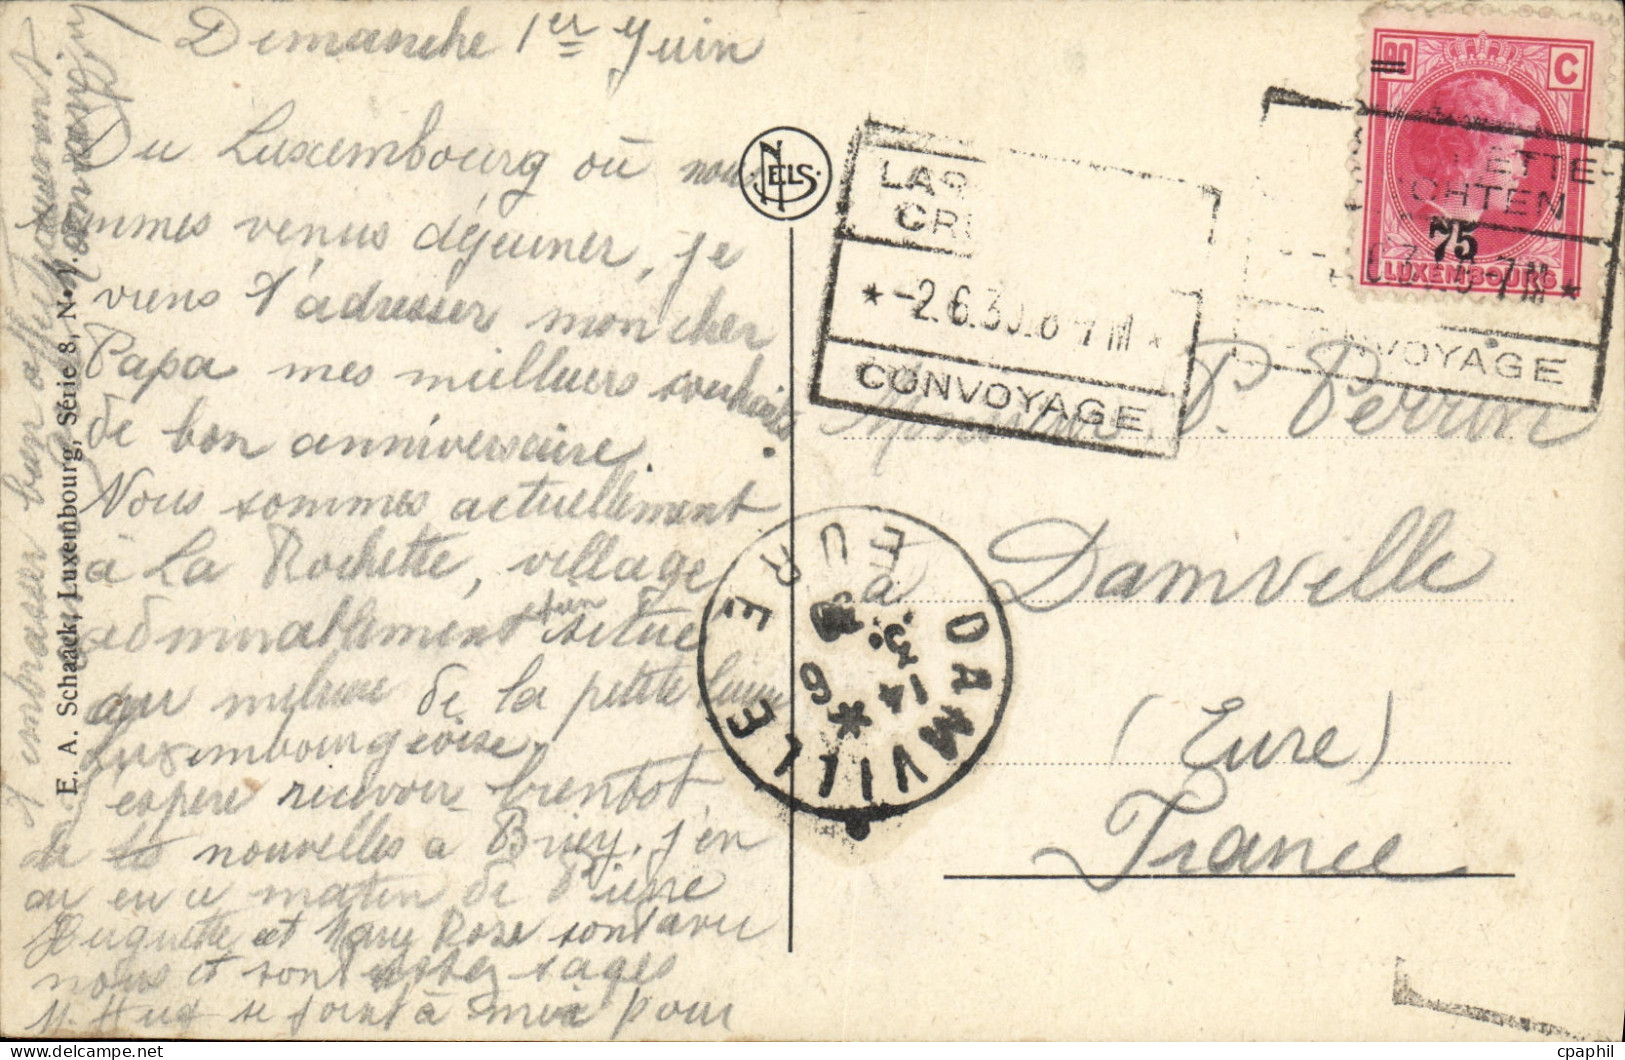 Dimanche 1er Juin
Du Luxembourg où nous
sommes venus déjeuner, je
viens t'adresser mon cher
Papa mes meilleurs souhaits
de bon anniversaire.
Nous sommes actuellement
à La Rochette, village
admirablement situé
au milieu de la petite
Luxembourgeoise.
J'espère recevoir bientot
de tes nouvelles à Briey, j'en
ai eu ce matin de Pierre
Huguette et Mary Rose sont avec
nous et sont assez sages
M. Huet se joint à moi pour
t'embrasser bien affectueusement
E. A. Schaack, Luxembourg, Série 8, N.
NELS
LAR
CRE
-2.6.30.6-7M
CONVOYAGE
ETTE-
CHTEN
6-7M
NVOYAGE
90 C
75
LUXEMBOURG
Monsieur P. Perrin
à Damville
(Eure)
France
DAMVILLE EURE
14
3.
6
cpaphil